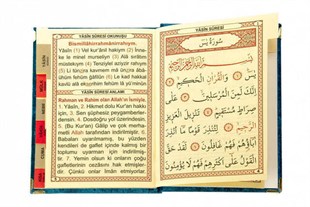 YÂSÎN SÛRESİ OKUNUŞU
Bismillâhirrahmânirrahîym.
Yâsîn (1) Vel kur'ânil hakiym (2) İnne-
ke le minel murseliyn (3) Alâ sırâtım
müstekıym (4) Tenziylel aziyzir rahıym
YÂSÎN SÛRESİ ANLAMI
Rahman ve Rahim olan Allah'ın İsmiyle.
1. Yâsîn, 2. Hikmet dolu Kur'an hakkı
için, 3. Sen şüphesiz peygamberler-
densin. 4. Dosdoğru yol üzerindesin.
5. (Bu Kur'an) Gâlip ve çok merha-
metli Allah tarafından indirilmiştir. 6.
Babaları uyarılmamış, bu yüzden
kendileri de gaflet içinde kalmış bir
toplumu uyarman için indirilmiş-
tir. 7. Yemin olsun ki onların çoğu
gafletlerinin cezasını hak etmişler-
dir. Çünkü onlar îmân etmiyorlar.
YÂSÎN SÛRESİ
سُورَةُ يٰسٓ
يٰسٓ ۞ وَالْقُرْاٰنِ الْحَك۪يمِ ۞
اِنَّكَ لَمِنَ الْمُرْسَل۪ينَ ۞ عَلٰى
صِرَاطٍ مُسْتَق۪يمٍ ۞ تَنْز۪يلَ الْعَز۪يزِ
الرَّح۪يمِ ۞ لِتُنْذِرَ قَوْمًا مَٓا اُنْذِرَ
اٰبَٓاؤُ۬هُمْ فَهُمْ غَافِلُونَ ۞ لَقَدْ حَقَّ
الْقَوْلُ عَلٰٓى اَكْثَرِهِمْ فَهُمْ لَا يُؤْمِنُونَ